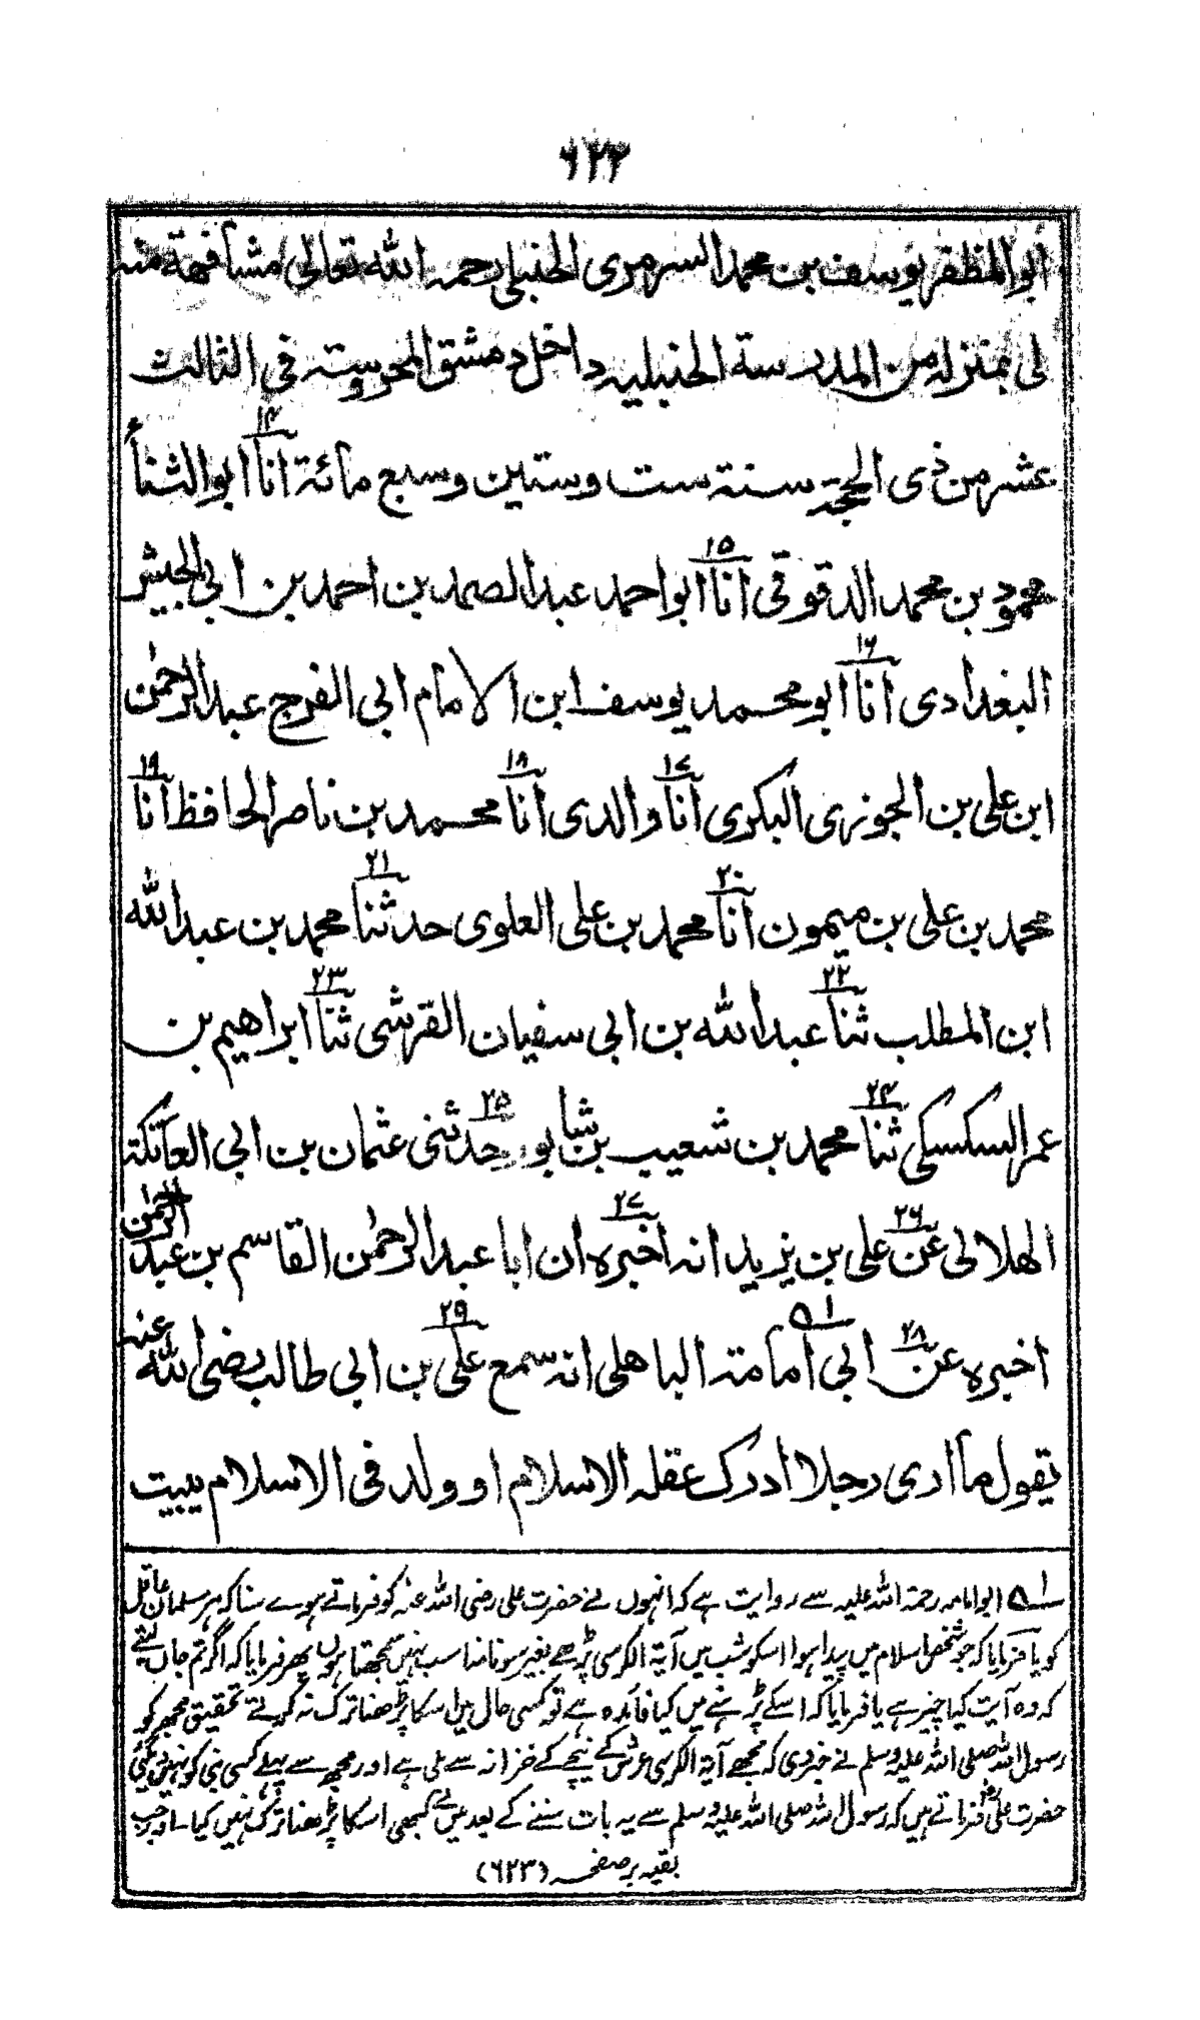 ٦٢٢
ابو المظفر يوسف بن محمد السرمري الحنبلي رحمه الله تعالى مشافهة منه
لي بمنزله من المدرسة الحنبليه داخل دمشق المحروسته في الثالث
عشر من ذي الحجة سنة ست وستين وسبع مائة انا ۱۴ ابو الثناء
محمود بن محمد الدقوقي انا ۱۵ ابو احمد عبد الصمد بن احمد بن ابي الجيش
البغدادي انا ۱۶ ابو محمد يوسف ابن الامام ابي الفرج عبد الرحمٰن
ابن علي بن الجوزي البكري انا ۱۷ والدي انا ۱۸ محمد بن ناصر الحافظ انا ۱۹
محمد بن علي بن ميمون انا ۲۰ محمد بن علي العلوي حدثنا ۲۱ محمد بن عبد الله
ابن المطلب ثنا ۲۲ عبد الله بن ابي سفيان القرشي ثنا ۲۳ ابراهيم بن
عمر السكسكي ثنا ۲۴ محمد بن شعيب بن شابور حدثني ۲۵ عثمان بن ابي العاتكة
الهلالي عن ۲۶ علي بن يزيد انه اخبره ۲۷ ان ابا عبد الرحمٰن القاسم بن عبد الرحمٰن
اخبره عن ۲۸ ابي امامة ۵۱ الباهلي انه سمع علي ۲۹ بن ابي طالب رضي الله عنه
يقول ما ارى رجلا ادرك عقله الاسلام او ولد في الاسلام يبيت
۵۱ ابوامامہ رحمۃ اللہ علیہ سے روایت ہے کہ انہوں نے حضرت علی رضی اللہ عنہ کو فرماتے ہوے سنا کہ ہر مسلمان عاقل
کو یا فرمایا کہ جو شخص اسلام میں پیدا ہوا اسکو شب میں آیۃ الکرسی پڑھے بغیر سونا مناسب نہیں سمجھتا ہوں پھر فرمایا کہ اگر تم جان لیتے
کہ وہ آیت کیا چیز ہے یا فرمایا کہ اسکے پڑہنے میں کیا فائدہ ہے تو کسی حال میں اسکا پڑھنا ترک نہ کرتے تحقیق مجھ کو
رسول اللہ صلی اللہ علیہ وسلم نے خبر دی کہ مجھے آیۃ الکرسی عرش کے نیچے کے خزانہ سے ملی ہے اور مجھ سے پہلے کسی نبی کو نہیں دی گئی
حضرت علیؓ فرماتے ہیں کہ رسول اللہ صلی اللہ علیہ وسلم سے یہ بات سننے کے بعد میں نے کبھی اسکا پڑھنا ترک نہیں کیا۔ اور جب
بقیہ بر صفحہ (٦٢٣)